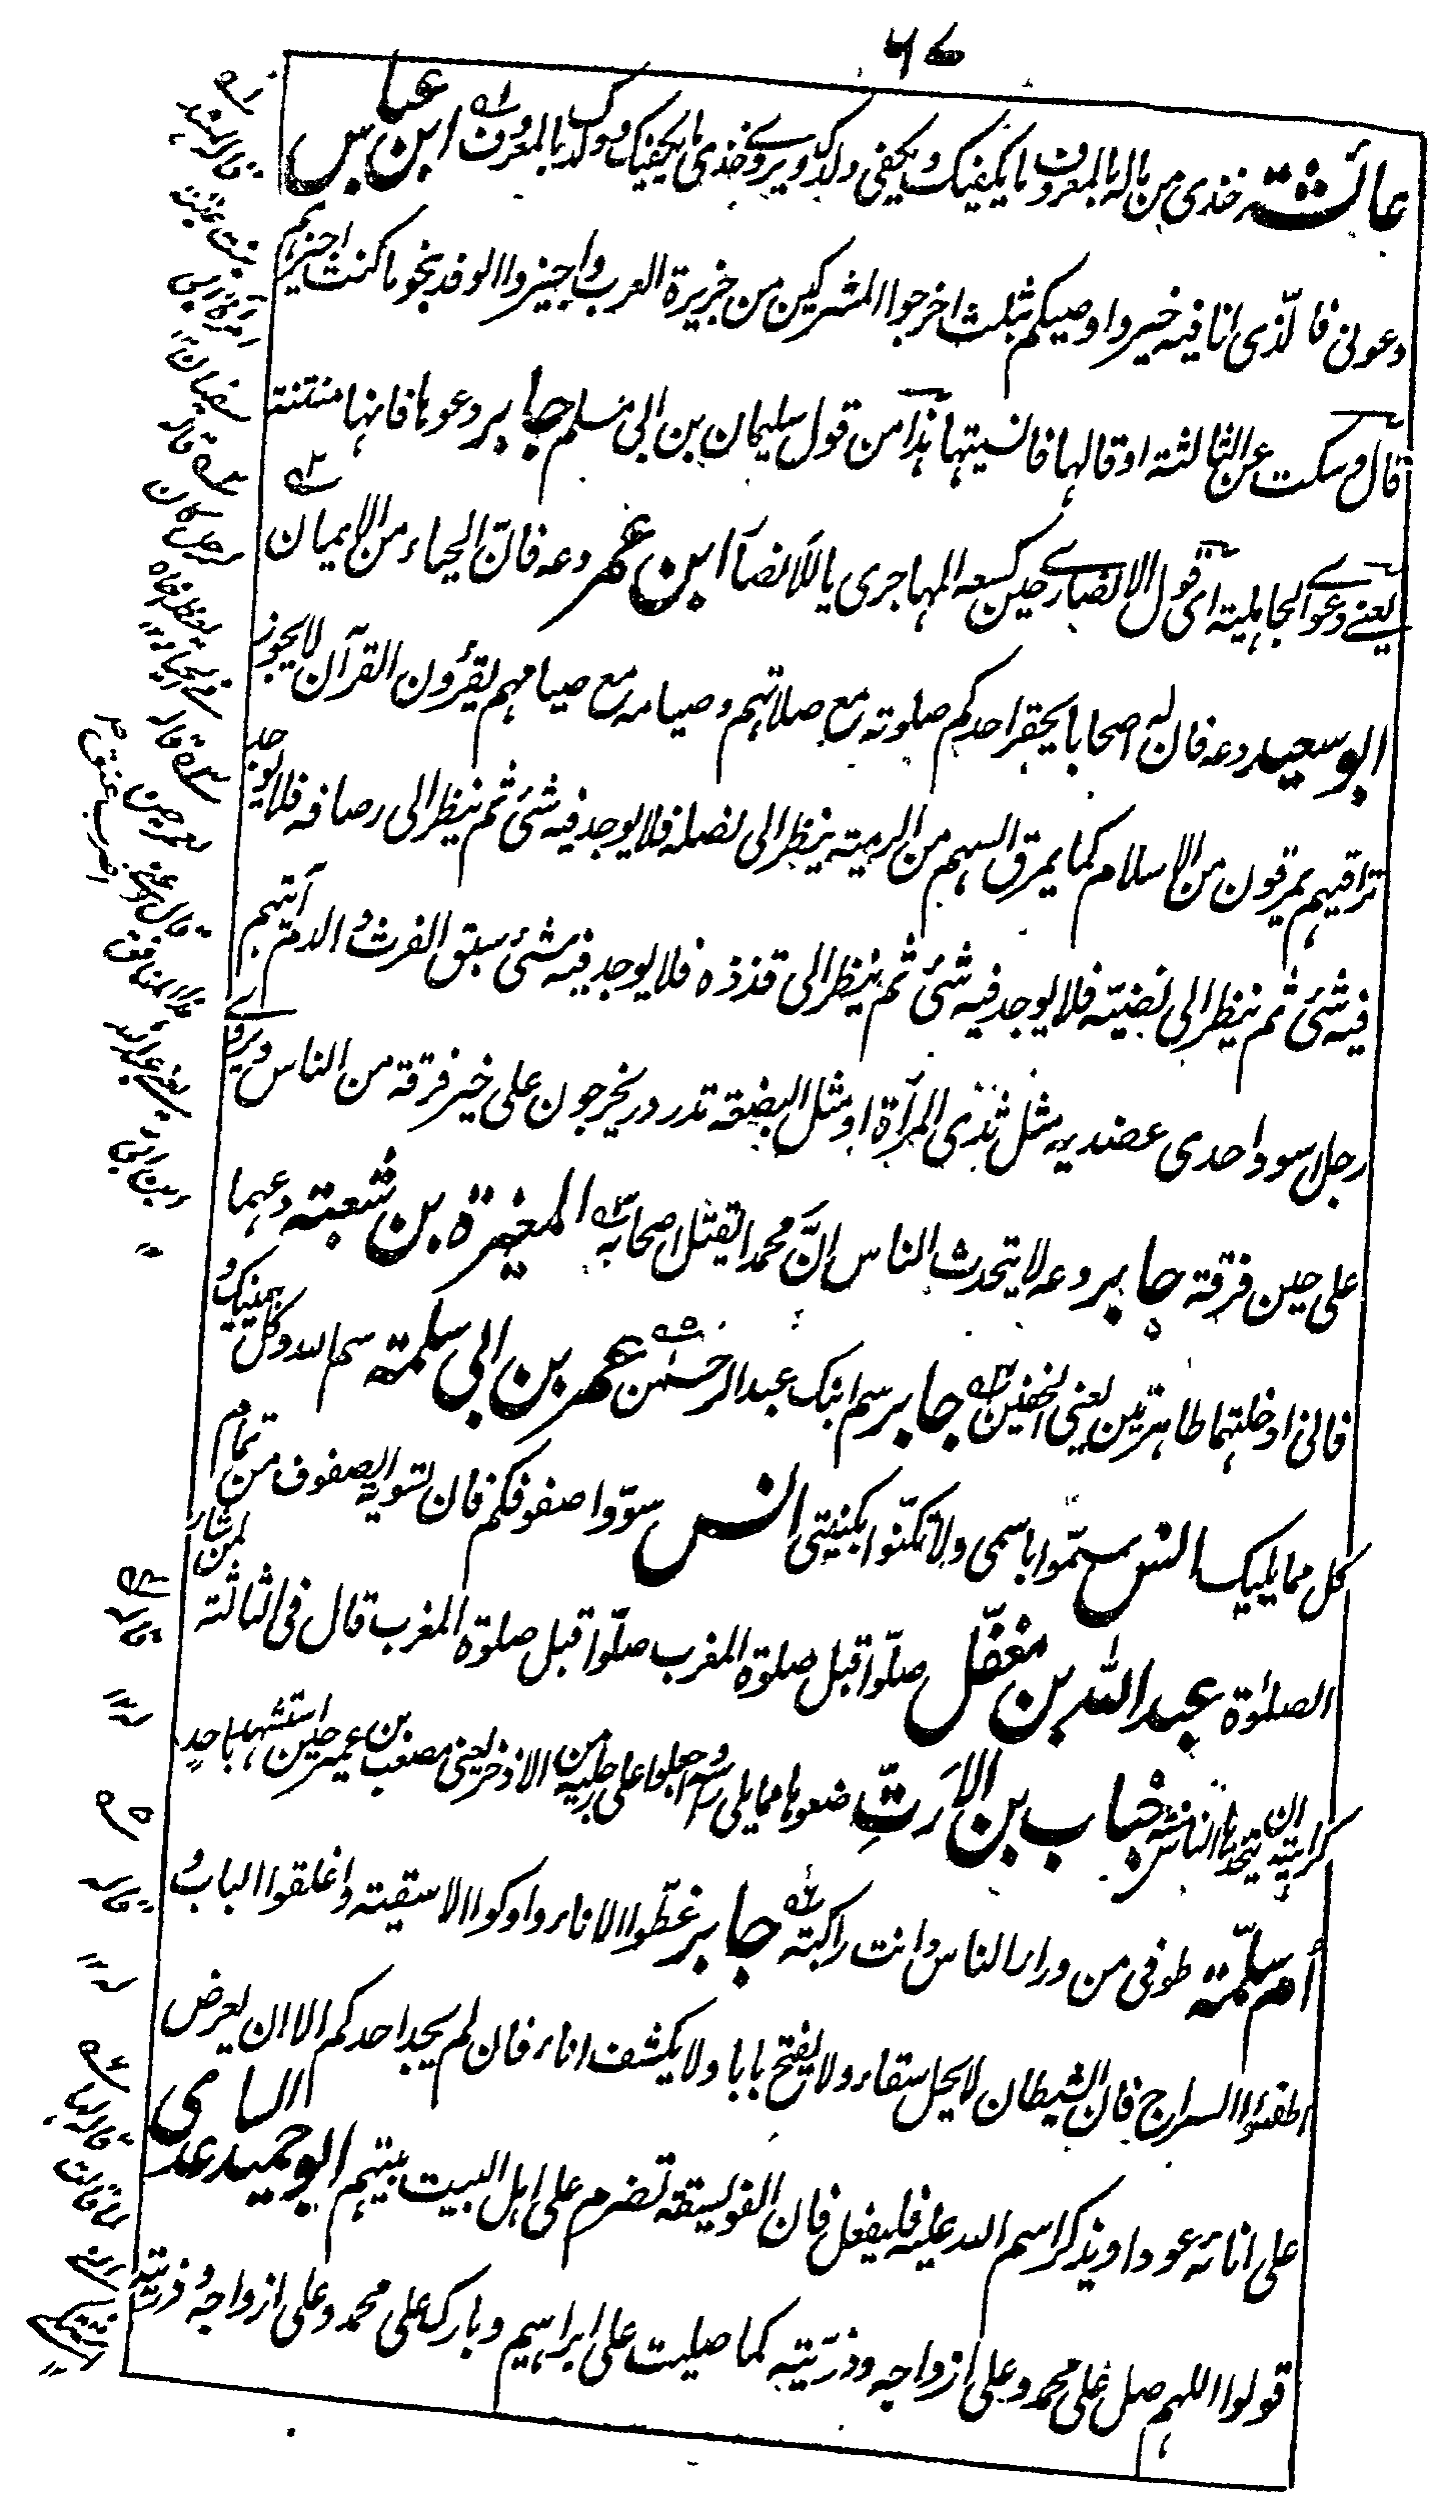 ٦٧
عائشة خذي من ماله بالمعروف ما يكفيك ويكفي ولدك ويروى خذي ما يكفيك وولدك بالمعروف ابن عباس
دعوني فالّذي انا فيه خير واوصيكم بثلث اخرجوا المشركين من جزيرة العرب واجيزوا الوفد بنحو ما كنت اجيزهم
قال وسكت عن الثالثة او قالها فانسيتها هذا من قول سليمان بن ابي مسلم جابر دعوها فانها منتنة
يعني دعوى الجاهلية اي قول الانصاري حين كسعه المهاجري يا للانصار ابن عمر دعه فانّ الحياء من الايمان
ابو سعيد دعه فان له اصحابا يحقر احدكم صلوته مع صلاتهم وصيامه مع صيامهم يقرؤن القرآن لا يجوز
تراقيهم يمرقون من الاسلام كما يمرق السهم من الرمية ينظر الى نصله فلا يوجد فيه شئ ثم ينظر الى رصافه فلا يوجد
فيه شئ ثم ينظر الى نضيّه فلا يوجد فيه شئ ثم ينظر الى قذذه فلا يوجد فيه شئ سبق الفرث والدم آيتهم
رجل اسود احدى عضديه مثل ثدي المرأة او مثل البضعة تدردر يخرجون على خير فرقة من الناس ويروى
على حين فرقة جابر دعه لا يتحدث الناس انّ محمدا يقتل اصحابه المغيرة بن شعبة دعهما
فاني ادخلتهما طاهرتين يعني الخفين جابر سم ابنك عبد الرحمن عمر بن ابي سلمة سم الله وكل بيمينك و
كل مما يليك انس سمّوا باسمي ولا تكنّوا بكنيتي انس سوّوا صفوفكم فان تسوية الصفوف من تمام
الصلوة عبد الله بن مغفّل صلّوا قبل صلوة المغرب صلّوا قبل صلوة المغرب قال في الثالثة لمن شاء
كراهية ان يتخذها الناس سنة خباب بن الارتّ ضعوها مما يلي رأسه واجعلوا على رجليه من الاذخر يعني مصعب بن عمير حين استشهد باحد
أم سلمة طوفي من وراء الناس وانت راكبة جابر غطّوا الاناء واوكوا الاسقية واغلقوا الباب و
اطفئوا السراج فان الشيطان لا يحل سقاء ولا يفتح بابا ولا يكشف اناء فان لم يجد احدكم الا ان يعرض
على انائه عودا ويذكر اسم الله عليه فليفعل فان الفويسقة تضرم على اهل البيت بيتهم ابو حميد الساعدي
قولوا اللهم صل على محمد وعلى ازواجه وذرّيته كما صليت على ابراهيم وبارك على محمد وعلى ازواجه وذريته
قاله لهند
بنت عتبة
امرأة ابي
سفيان
قاله
لرجل كان
يعظ اخاه
في الحياء
قاله
لعمر حين
قال دعني اضرب عنق
هذا المنافق
يعني عبد الله
بن ابي
قاله
له
قاله
له
قاله لها